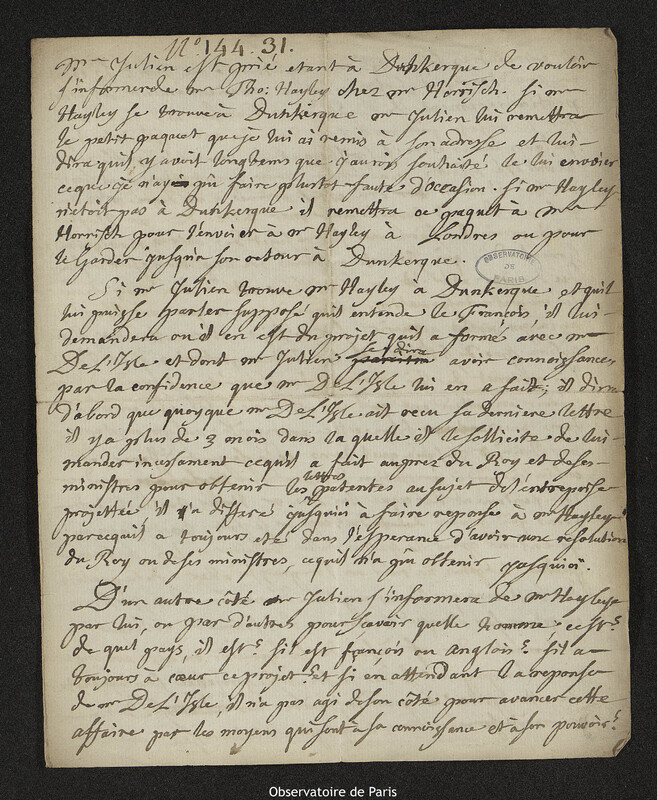 N.º 144. 31.
Mr Julien est prié etant à Dunkerque de vouloir
s'informer de mr Tho: Hayley chez mr Horrisch. si mr
Hayley se trouve à Dunkerque mr Julien lui remettra
le petit paquet que je lui ai remis à son adresse et lui
dira qu'il y avoit longtems que j'aurois souhaité le lui envoier
ce que je n'ay pû faire plustot faute d'occasion. si mr Hayley
n'etoit pas à Dunkerque il remettra ce paquet à mr
Horrisch pour l'envoier à mr Hayley à Londres ou pour
le Garder jusqu'a son retour à Dunkerque.
OBSERVATOIRE
DE
PARIS
Si mr Julien trouve mr Hayley à Dunkerque et quil
lui puisse parler supposé quil entende le François il lui
demandera ou il en est du projet quil a formé avec mr
De L'Isle et dont mr Julien se dira avoir connoissance
par la confidence que mr De L'Isle lui en a fait; il dira
d'abord que quoyque mr De L'Isle ait recu sa derniere lettre
il y a plus de 3 mois dans la quelle il le sollicite de lui
mander incessament ce quil a fait aupres du Roy et de ses
ministres pour obtenir les lettres patentes au sujet de l'entreprise
projettée, il a differé jusquici à faire reponse à mr Hayley
parcequil a toujours eté dans l'esperance d'avoir une resolution
du Roy ou de ses ministres, ce quil n'a pû obtenir jusquici.
D'un autre côté mr Julien s'informera de mr Hayley
par lui, ou par d'autres pour scavoir quelle homme c'est?
de quel pays, il est? s'il est françois ou anglois? s'il a
toujours à cœur ce projet? et si en attendant la reponse
de mr De L'Isle, il n'a pas agi de son côté pour avancer cette
affaire par les moyens qui sont à sa connoissance et à son pouvoir?
Observatoire de Paris